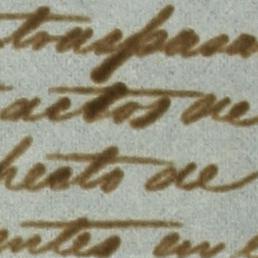 traspasa
actos de
hecto de
entes en e